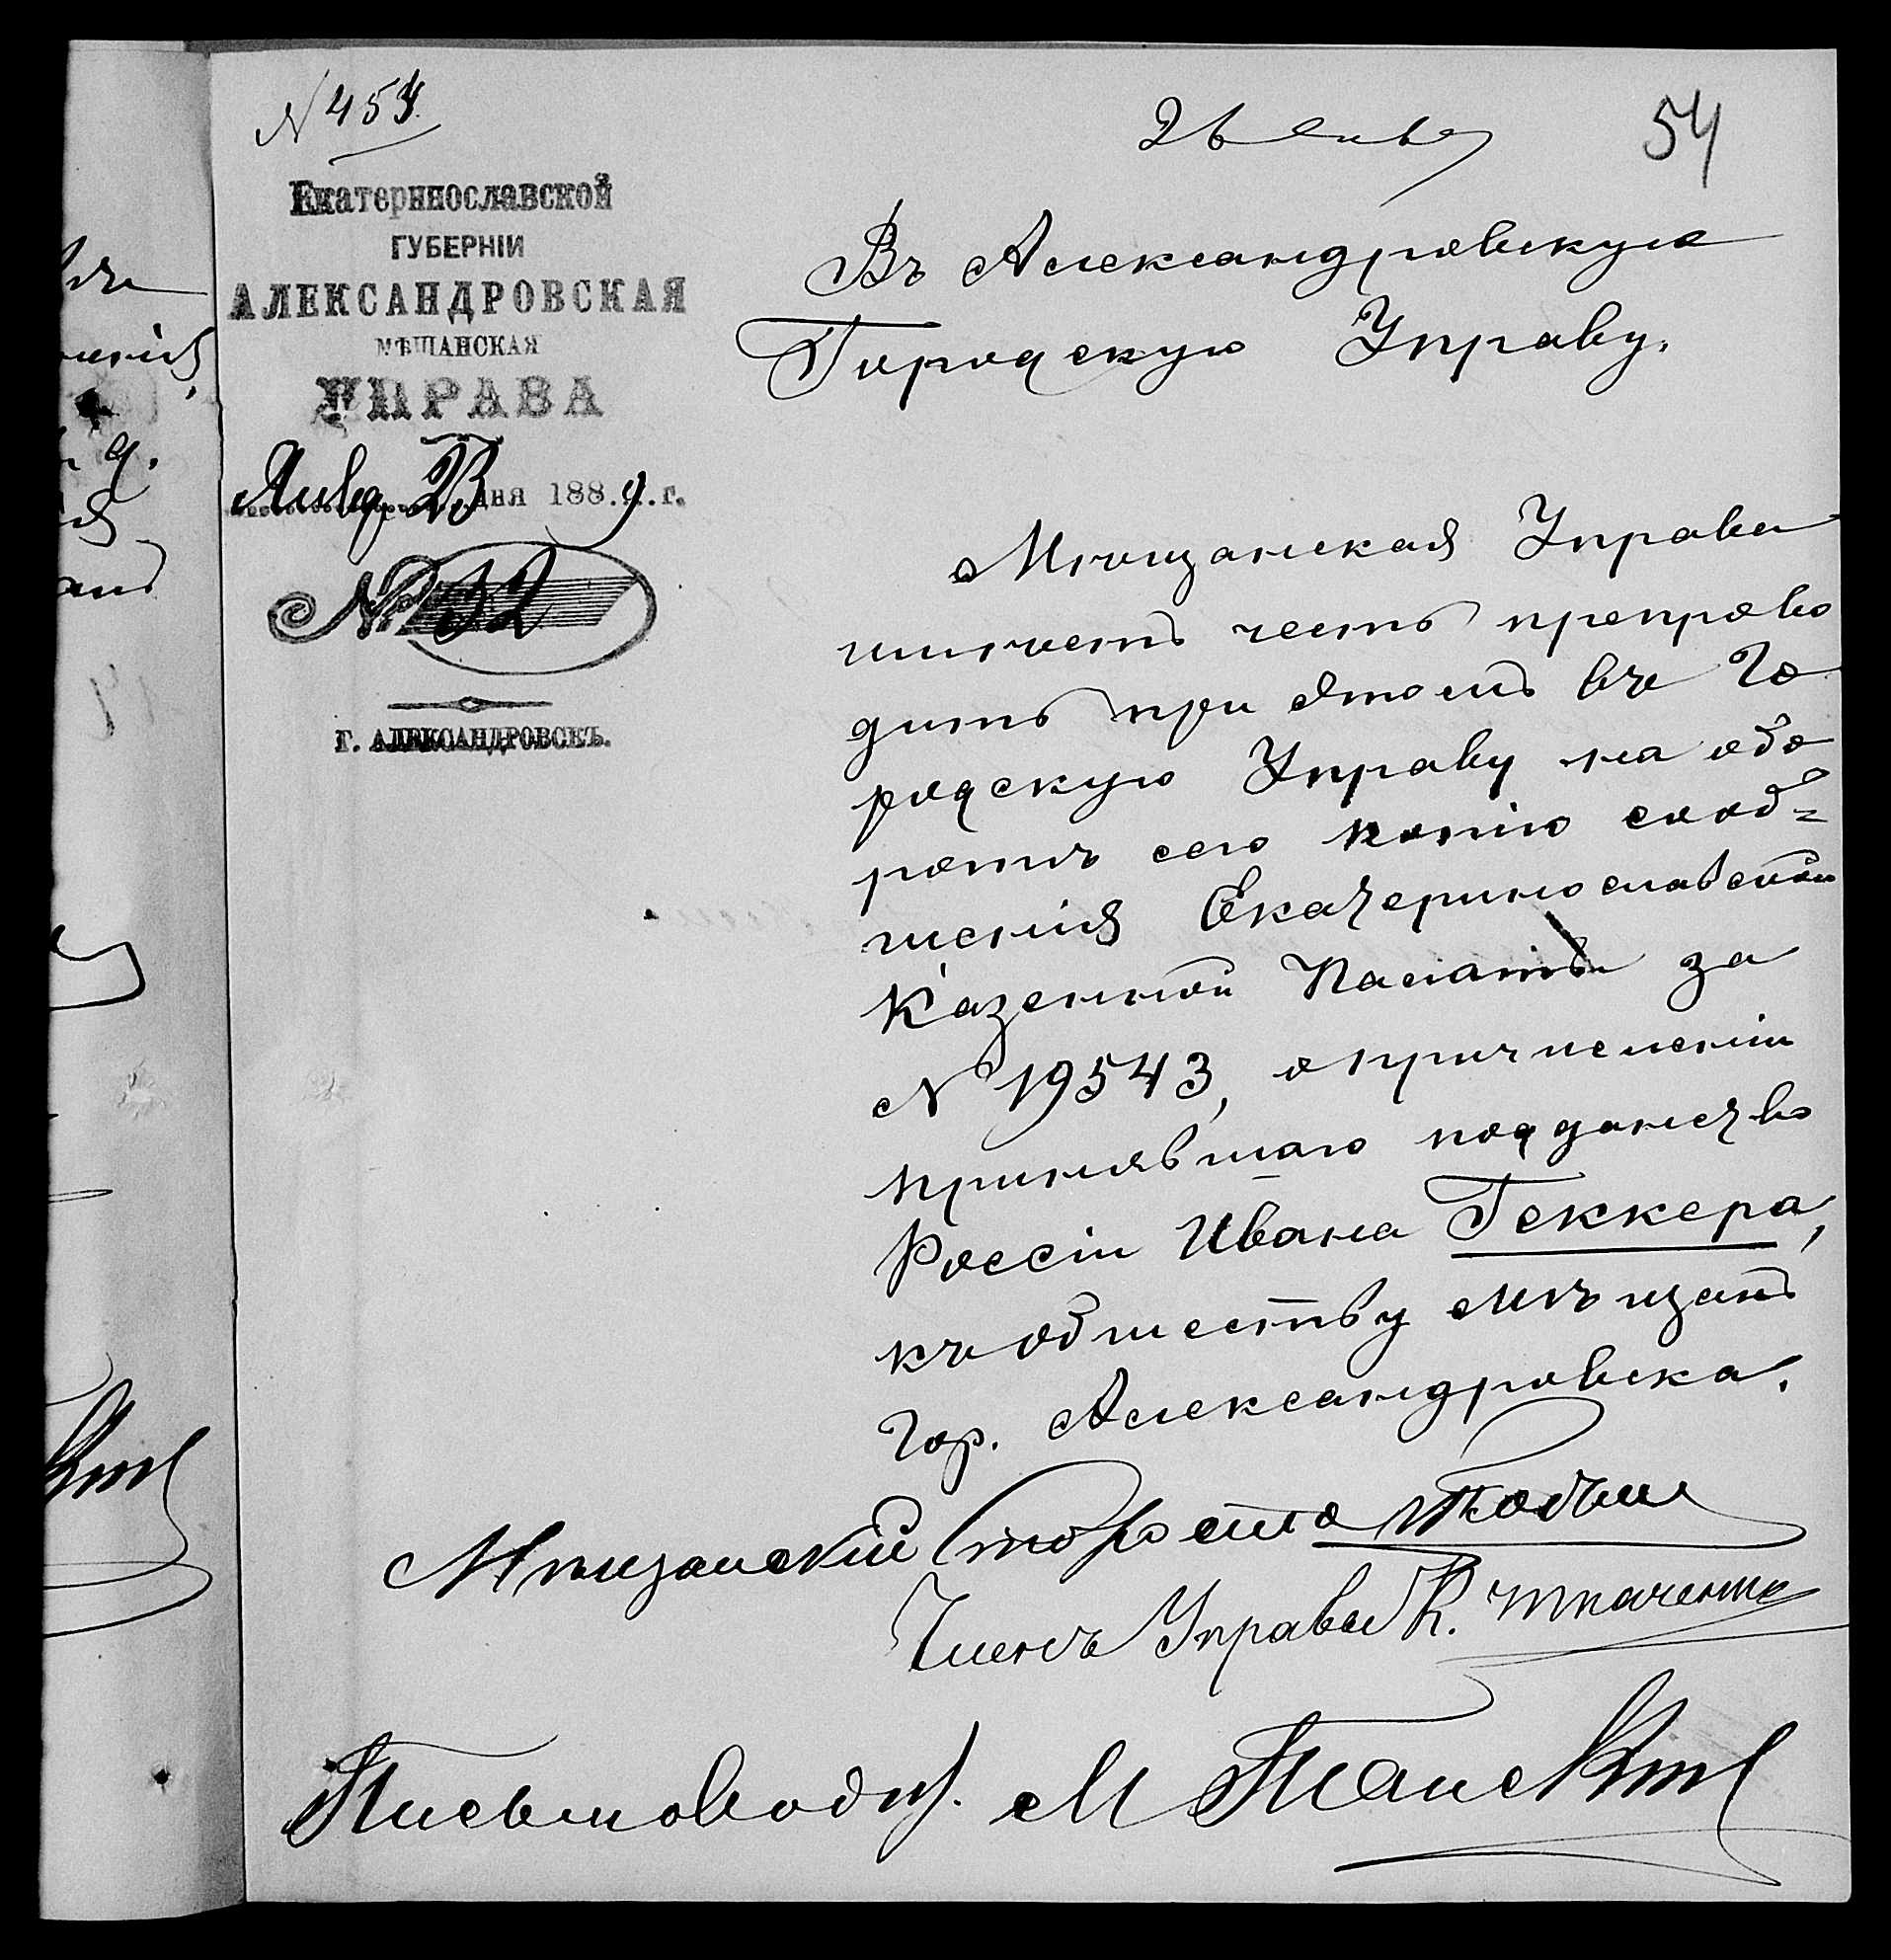 N 454.
26 Янв
54
Екатеринославской
ГУБЕРНІИ
АЛЕКСАНДРОВСКАЯ
МѢЩАНСКАЯ
УПРАВА
Янв. 23 дня 1889 г.
№ 32
г. АЛЕКСАНДРОВСКЪ.
Въ Александровскую
Городскую Управу.
Мѣщанская Управа
имѣетъ честь препрово
дить при этомъ въ Го
родскую Управу на обо
ротѣ сего копію сооб=
щенія Екатеринославской
Казенной Палаты за
N 19543, о причисленіи
принявшаго подданство
Россіи Ивана Геккера,
къ обществу мѣщанъ
гор. Александровска.
Мѣщанскій Староста
Членъ Управы К. Ткаченко
Письмоводит. М